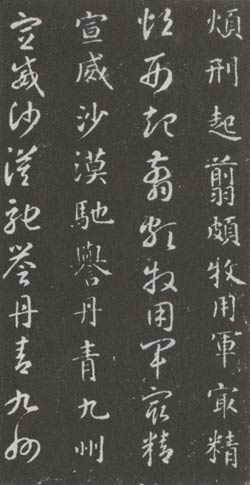 煩刑起翦頗牧用軍㝡精
煩刑起翦頗牧用軍㝡精
宣威沙漠馳譽丹青九州
宣威沙漠馳譽丹青九州